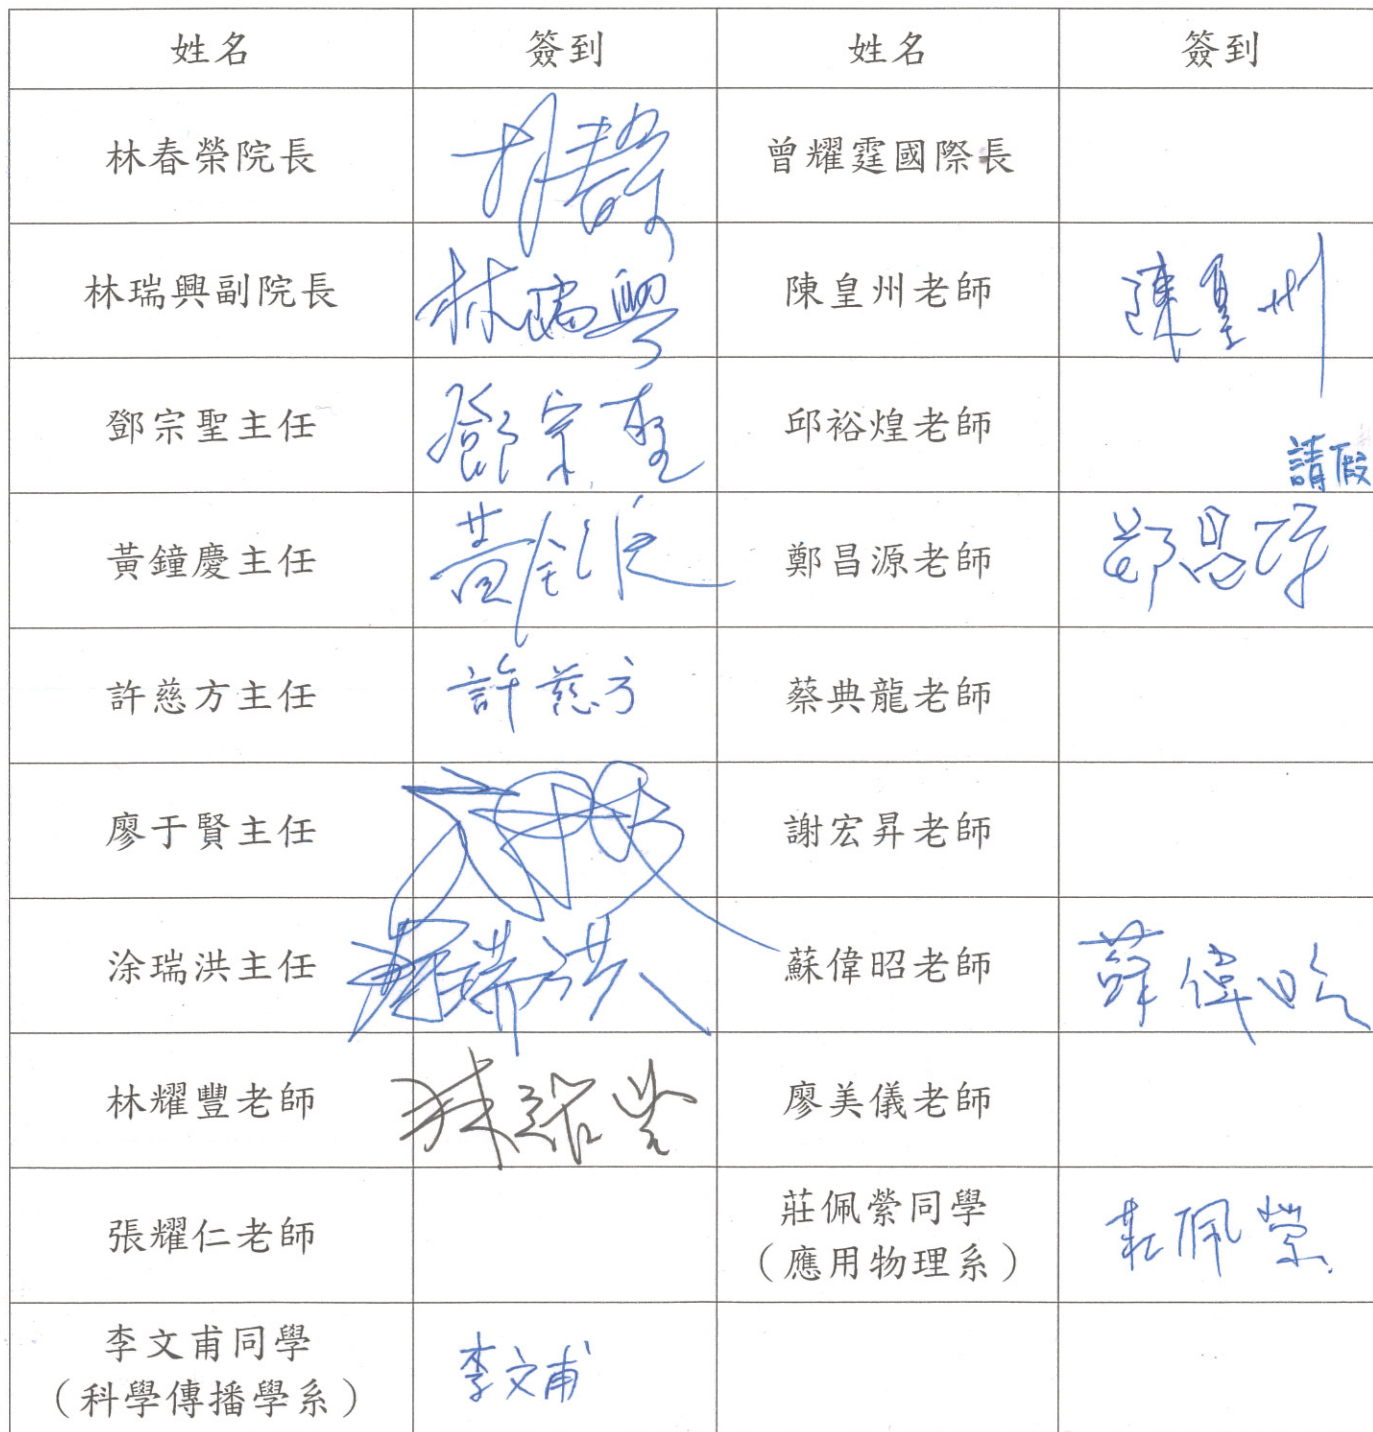 姓名 簽到 姓名 簽到
林春榮院長 曾耀霆國際長
林瑞興副院長 林瑞興 陳皇州老師 陳皇州
鄧宗聖主任 鄧宗聖 邱裕煌老師 請假
黃鐘慶主任 鄭昌源老師
許慈方主任 許慈方 蔡典龍老師
廖于賢主任 謝宏昇老師
涂瑞洪主任 涂瑞洪 蘇偉昭老師 蘇偉昭
林耀豐老師 廖美儀老師
張耀仁老師 莊佩縈同學
（應用物理系） 莊佩縈
李文甫同學
（科學傳播學系） 李文甫